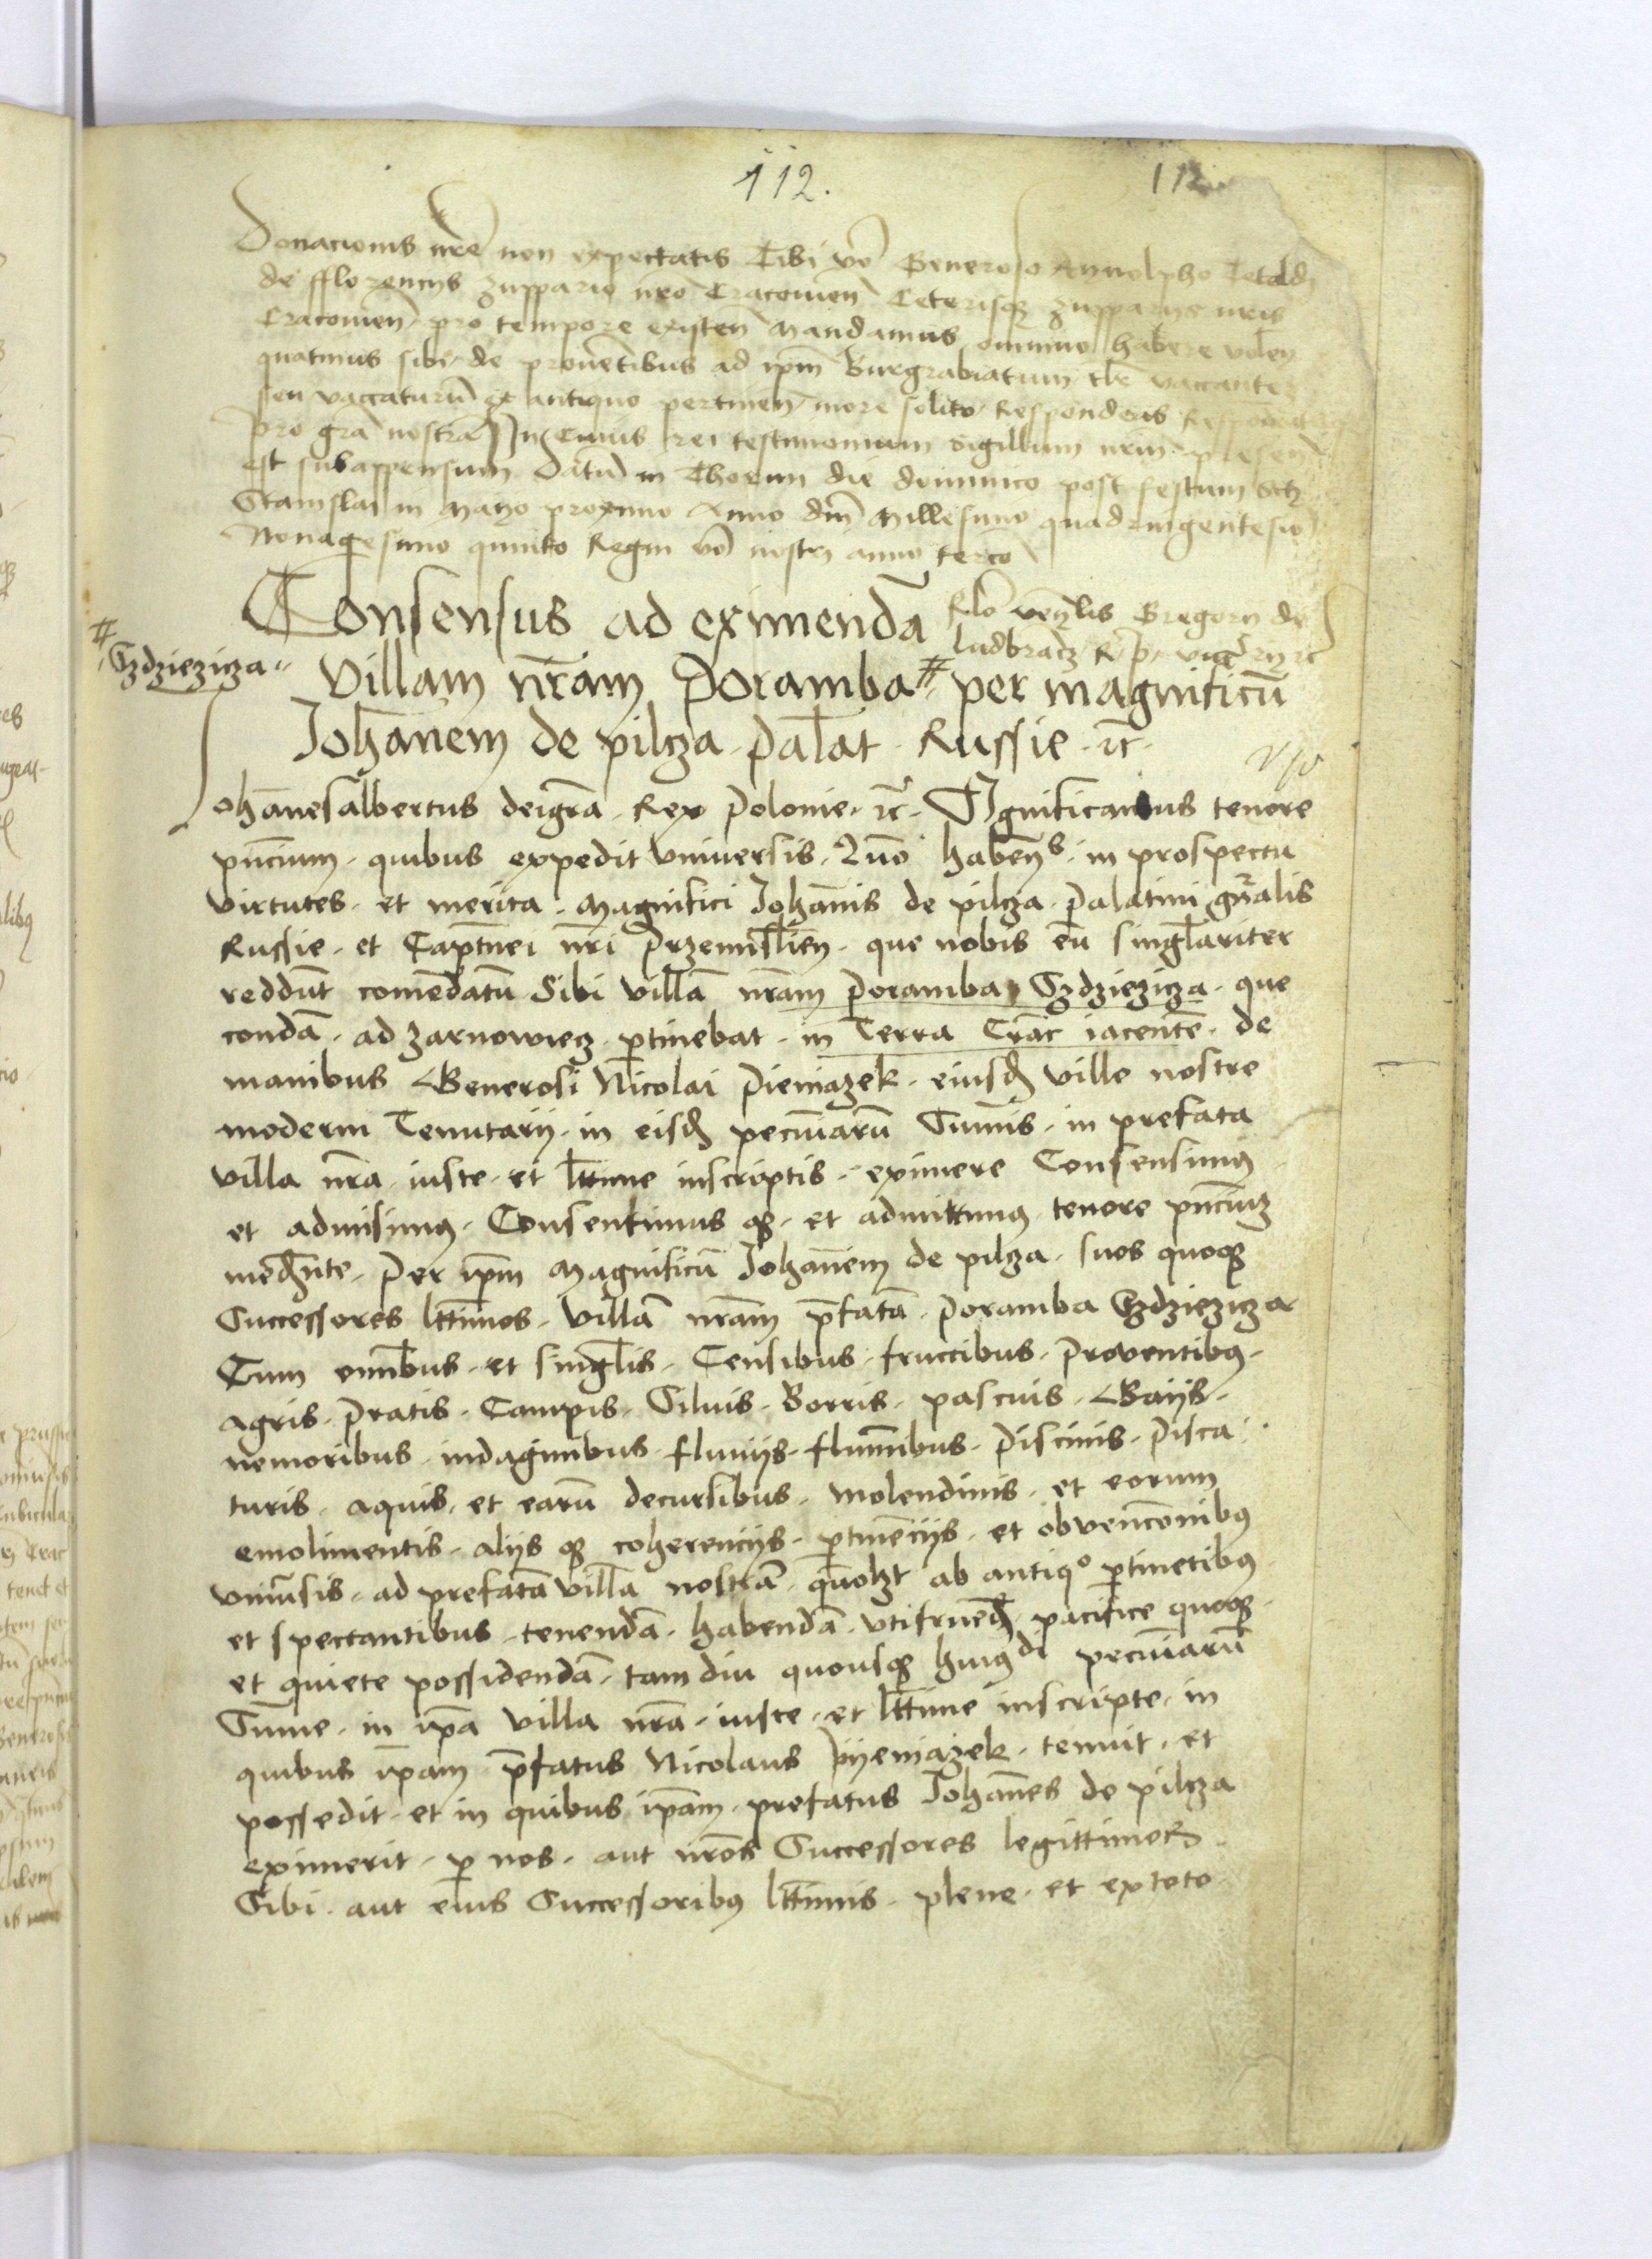 112.
112
Donacionis nre non expectatis Tibi vo Generoso Aynolpho Tetaldi
de fflorencys zuppario nro Cracovien Ceterisqz zupparys nris
Cracovien pro tempore existen Mandamus omnino habere volen
quatinus sibi de proventibus ad ipm Burgrabiatum
seu vaccaturu ex antiquo pertinen more solito Respondeatis
pro gra nostra In Cuius rei testimonium Sigillum nrm presen
est subappensum Datu in Thorun die dominico post festum Scti
Stanislai in Mayo proximo Anno dni Millesimo quadringentesio
Nonagesimo quinto Regni vo nostri anno tercio
Consensus ad eximenda
Rlo venlis Gregory de
ludbrancz R p vice
# Gzdziezicza
Villam nram Poramba # per magnificu
Johanem de pilcza palat Russie etc
Johanes albertus dei gra Rex Polonie etc Significamus tenore
pncium quibus expedit universis Quo haben in prospectu
virtutes et merita Magnifici Johanis de pilcza palatini gnralis
Russie et Captnei nri Przemislien que nobis eu singlariter
reddunt comedatu Sibi villa nram Poramba Gzdziezicza que
conda ad zarnowiecz ptinebat in Terra Crac iacente de
manibus Generosi Nicolai Pieniazek eiusd ville nostre
moderni Tenutarij in eisd pecuniaru Sumis in prefata
villa nra iuste et lttime inscriptis eximere Consensimus
et admisimus Consentimus qz et admittimus tenore pncium
medynte Per ipm Magnificu Johanem de pilcza suos quoqz
Successores lttimos villa nram pfata Poramba Gzdziezicza
Cum omibus et singlis Censibus fructibus Proventibus
agris Pratis Campis Siluis Borris pascuis Gaijs
nemoribus indaginibus fluvijs fluminibus Piscinis Pisca
turis aquis et earu decursibus molendinis et eorum
emolimentis alijs qz coherencijs ptinecijs et obvencionibus
universis ad prefata villa nostra quolzt ab antiqo ptinetibus
et spectantibus tenenda habenda utifruend pacifice quoqz
et quiete possidenda tam diu quousqz huiusdi pecuniaru
Sume in ipa villa nra iuste et lttime inscripte in
quibus ipam pfatus Nicolaus Pijeniazek tenuit et
possedit et in quibus ipam prefatus Johanes de pilcza
eximerit p nos aut nros Successores legittimos
Sibi aut eius Successoribus lttimis plene et ex toto